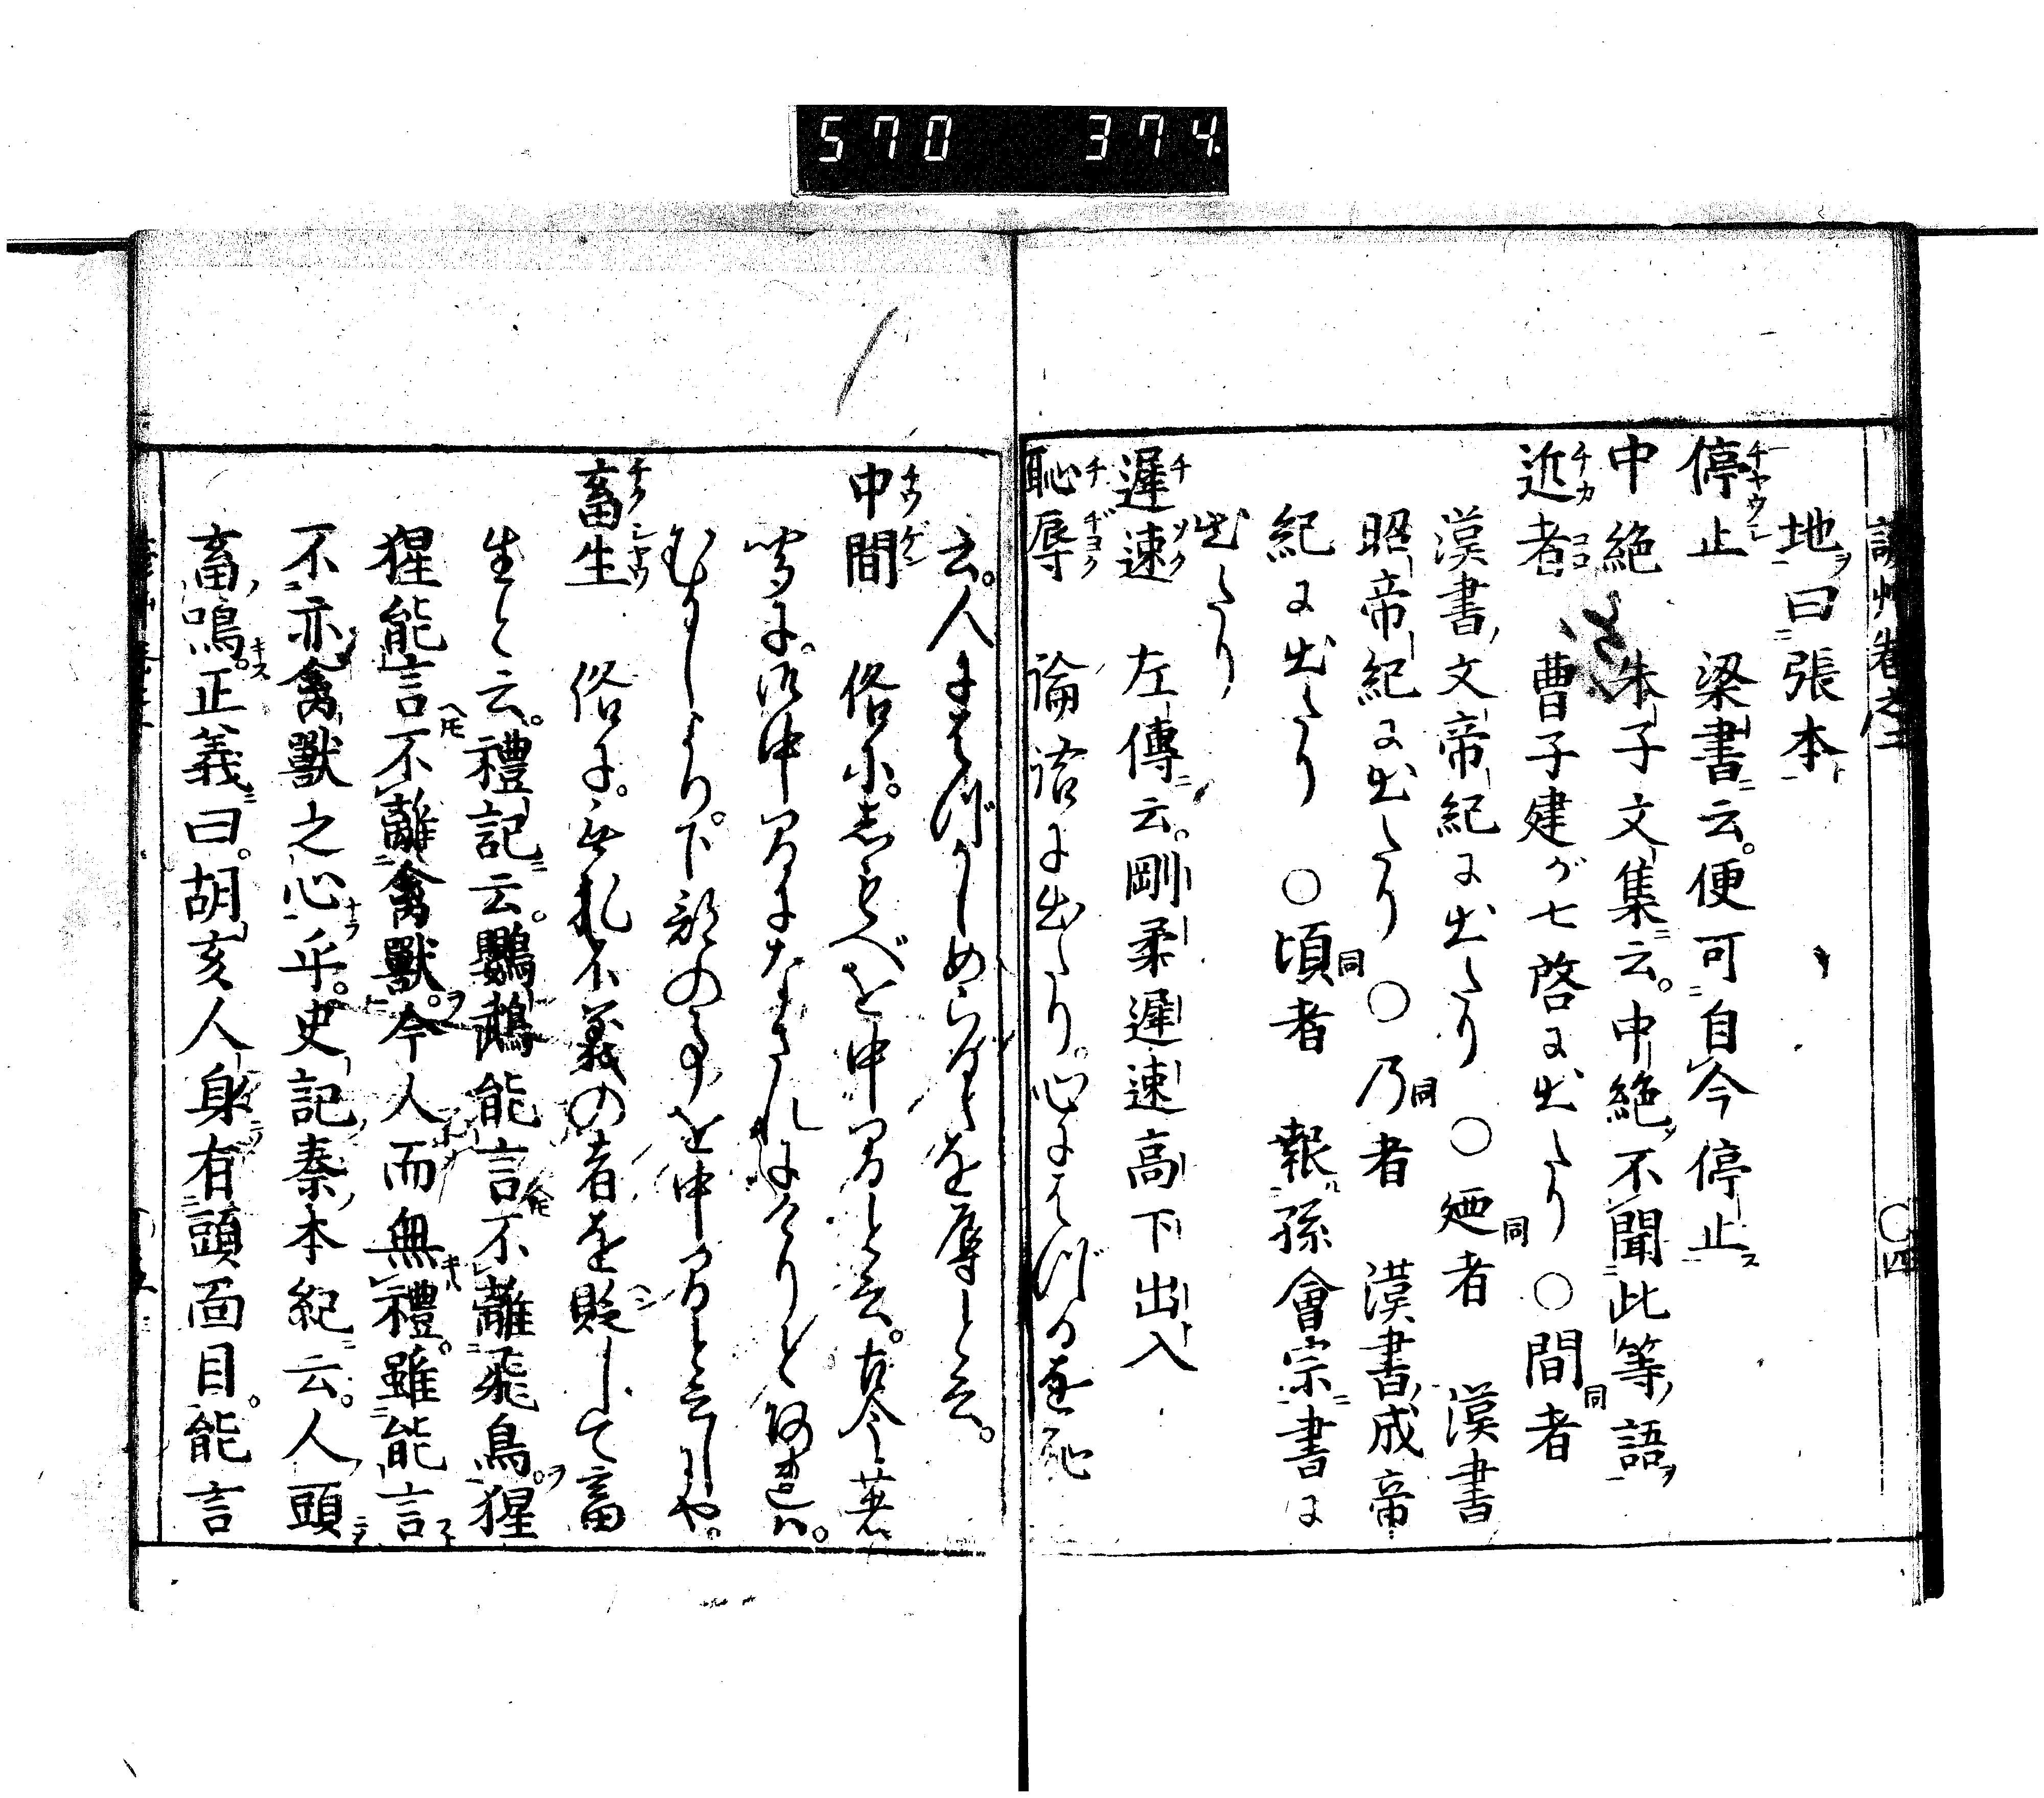 570 374.
諺艸巻之二 〇四
地ヲ曰張本ト
停止 梁書ニ云。便可自今停止ス
中絶 朱子文集ニ云。中絶不聞此等ノ語ヲ
近者 曹子建ガ七啓に出たり 〇間者
漢書ノ文帝紀に出たり 〇廼者 漢書
昭帝紀に出たり 〇乃者 漢書成帝
紀に出たり 〇頃者 報孫會宗ニ書に
出たり
遲速 左傳ニ云。剛柔遲速高下出入
恥辱 論語に出たり。心にはづるを恥
と云。人にはづかしめらるゝを辱と云。
中間 俗に。しもべを中間と云。古今著
聞に。御中間になされにけりとあれば。
むかしより。下部の事を中間と云引や。
畜生 俗に。無礼不義の者を貶して畜
生と云。禮記ニ云。鸚鵡能言不離飛鳥。猩
猩能言不離禽獸。今人而無禮。雖能言
不亦禽獸之心乎。史記秦本紀ニ云。人頭
畜鳴。正義ニ曰。胡亥人身有頭面目。能言